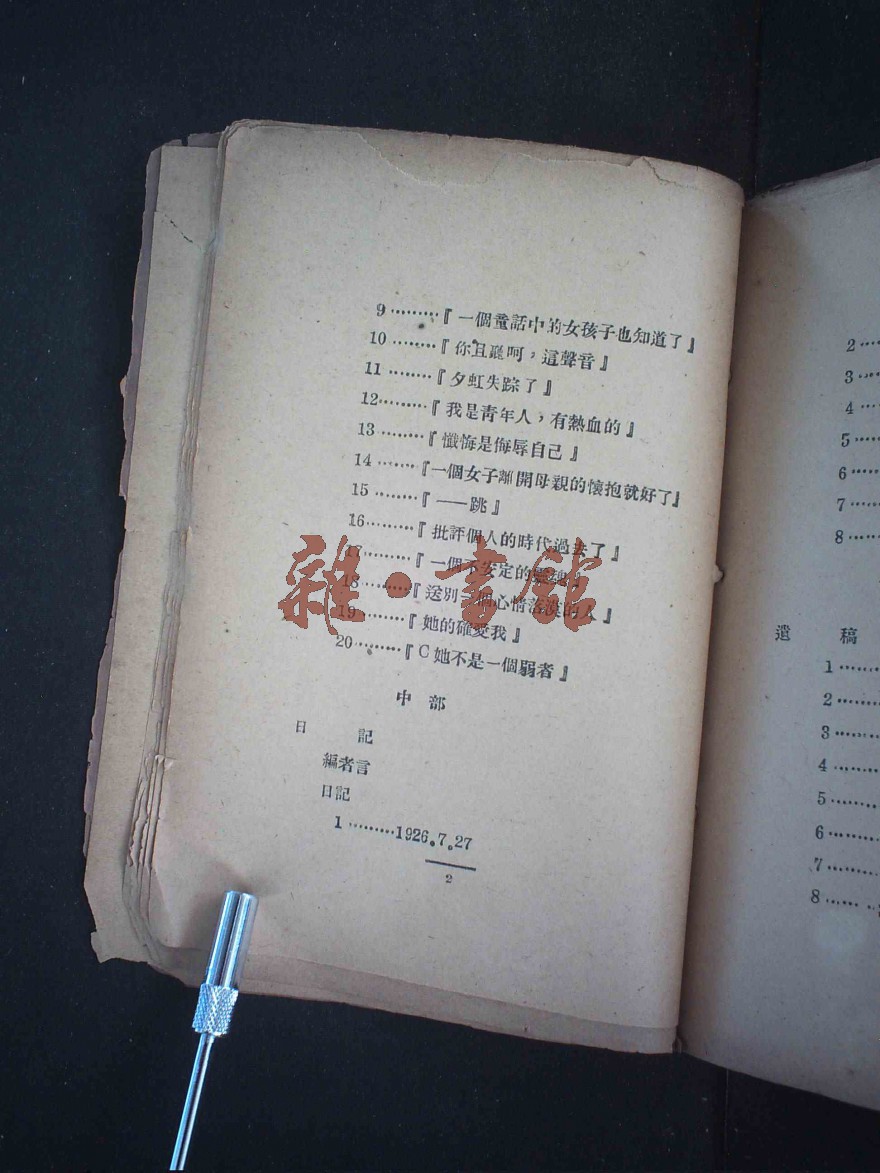 9………『一個童話中的女孩子也知道了』
10………『你且聽呵，這聲音』
11………『夕虹失踪了』
12………『我是靑年人，有熱血的』
13………『懺悔是侮辱自己』
14………『一個女子離開母親的懷抱就好了』
15………『——跳』
16………『批評個人的時代過去了』
17………『一個不安定的靈魂』
18………『送別一個心情落漠的人』
19………『她的確愛我』
20………『C她不是一個弱者』
中部
日記
編者言
日記
1………1926.7.27
2
2……
3……
4……
5……
6……
7……
8……
遺稿
1……
2……
3……
4……
5……
6……
7……
8……
雜·書館